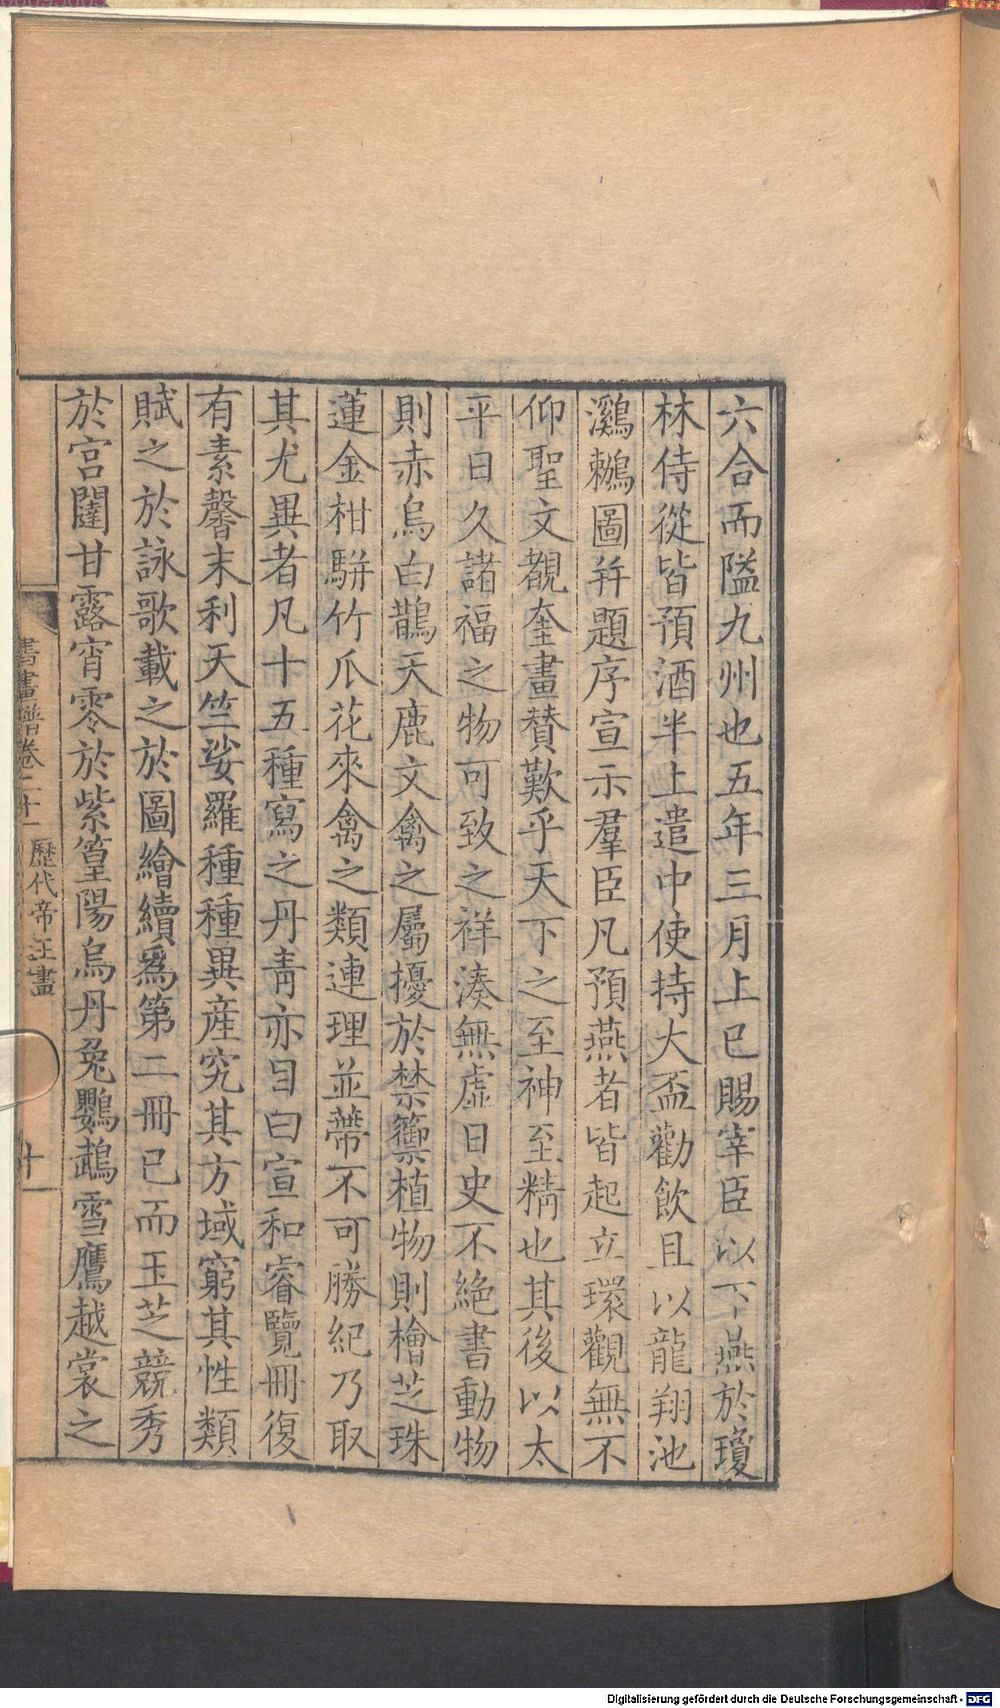 六合而隘九州也五年三月上巳賜宰臣以下燕於瓊
林侍從皆預酒半上遣中使持大盃勸飲且以龍翔池
鸂鶒圖幷題序宣示羣臣凡預燕者皆起立環觀無不
仰聖文覩奎畫賛歎乎天下之至神至精也其後以太
平日久諸福之物可致之祥湊無虛日史不絕書動物
則赤烏白鵲天鹿文禽之屬擾於禁籞植物則檜芝珠
蓮金柑駢竹瓜花來禽之類連理並蔕不可勝紀乃取
其尤異者凡十五種寫之丹靑亦目曰宣和睿覽冊復
有素馨末利天竺娑羅種種異産究其方域窮其性類
賦之於詠歌載之於圖繪續爲第二冊已而玉芝競秀
於宮闥甘露宵零於紫篁陽烏丹兔鸚鵡雪鷹越裳之
書畫譜卷二十一 歷代帝王畫 十
Digitalisierung gefördert durch die Deutsche Forschungsgemeinschaft - DFG